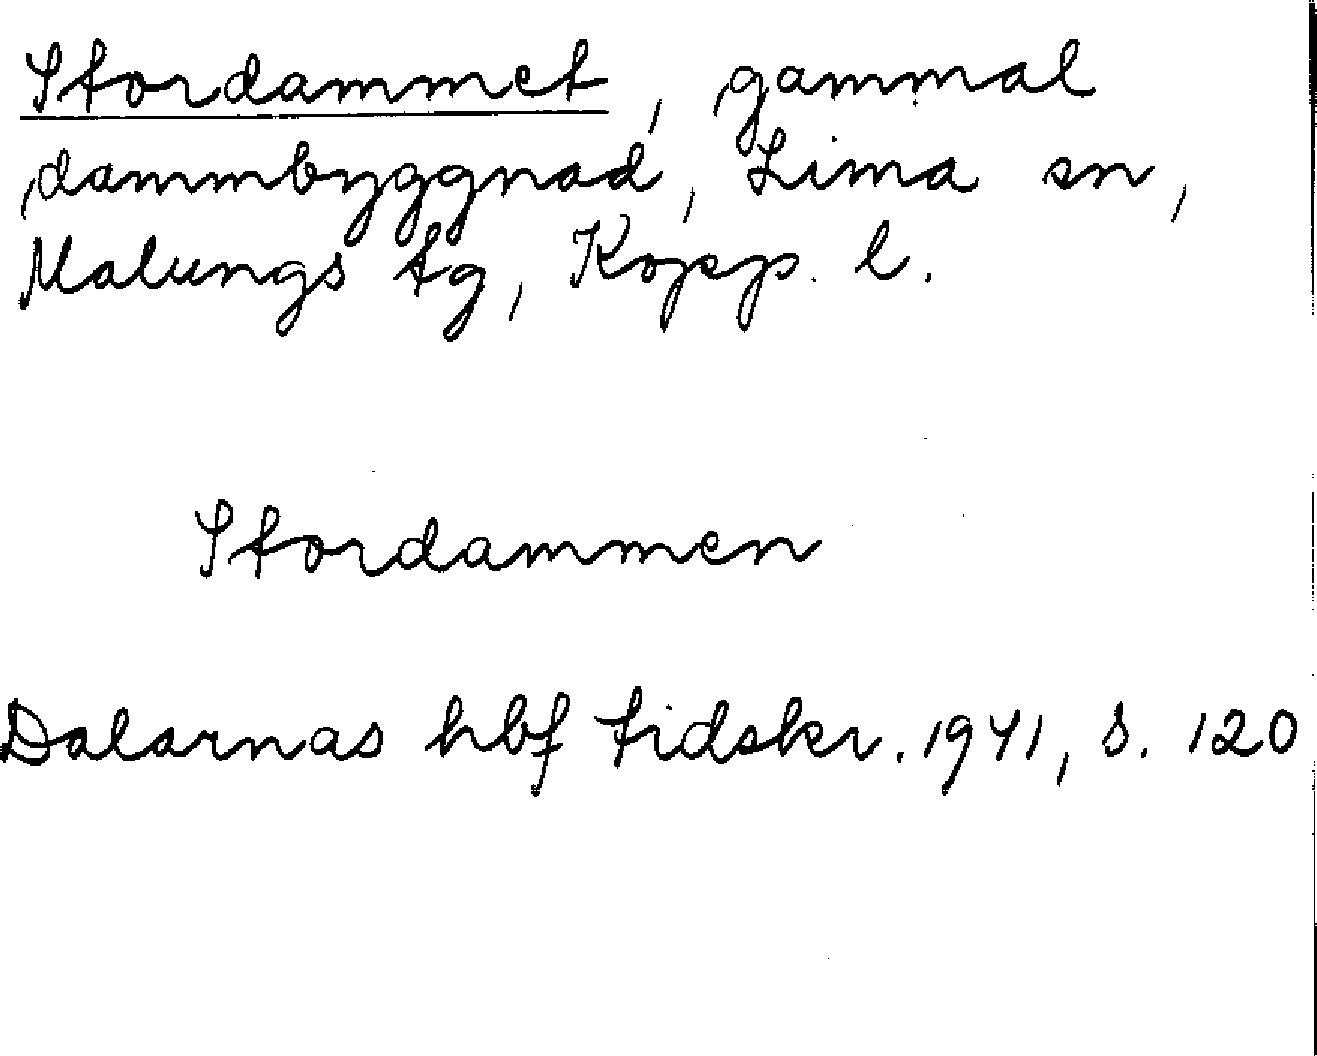 Stordammet, gammal
dammbyggnad, Lima sn,
Malungs tg, Kopp. l.
Stordammen
Dalarnas hbf tidskr. 1941, s. 120